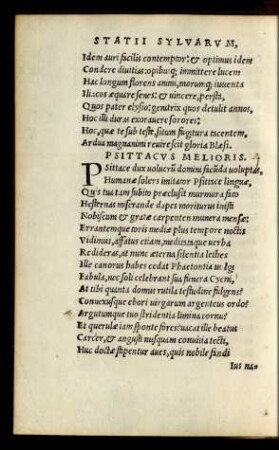 STATII SYLVARVM,
Idem auri facilis contemptor: & optimus idem
Condere diuitias: opibusq; immittere lucem
Hac longum florens animi, morumq; iuuenta
Iliacos æquare senes: & uincere, persta,
Quos pater elysio: genitrix quos detulit annos,
Hoc illi duras exorauere sorores:
Hoc, quæ te sub teste, situm fugitura tacentem,
Ardua magnanimi reuirescit gloria Blæsi.
PSITTACVS MELIORIS.
Psittace dux uolucrũ domini facũda uoluptas,
Humanæ solers imitator Psittace linguæ,
Quis tua tam subito præclusit murmura fato
Hesternas miserande dapes moriturus inisti
Nobiscum & gratæ carpentem munera mensæ:
Errantemque toris mediæ plus tempore noctis
Vidimus, affatus etiam, meditataque uerba
Reddideras, at nunc æterna silentia lethes
Ille canorus habes cedat Phaetontia uulgi
Fabula, nec soli celebrant sua funera Cycni,
At tibi quanta domus rutila testudine fulgens?
Connexusque ebori uirgarum argenteus ordo?
Argutumque tuo stridentia limina cornu?
Et querulæ iam sponte fores: uacat ille beatus
Carcer, & angusti nusquam conuitia tecti,
Huc doctæ stipentur aues, quis nobile fandi
Ius na=